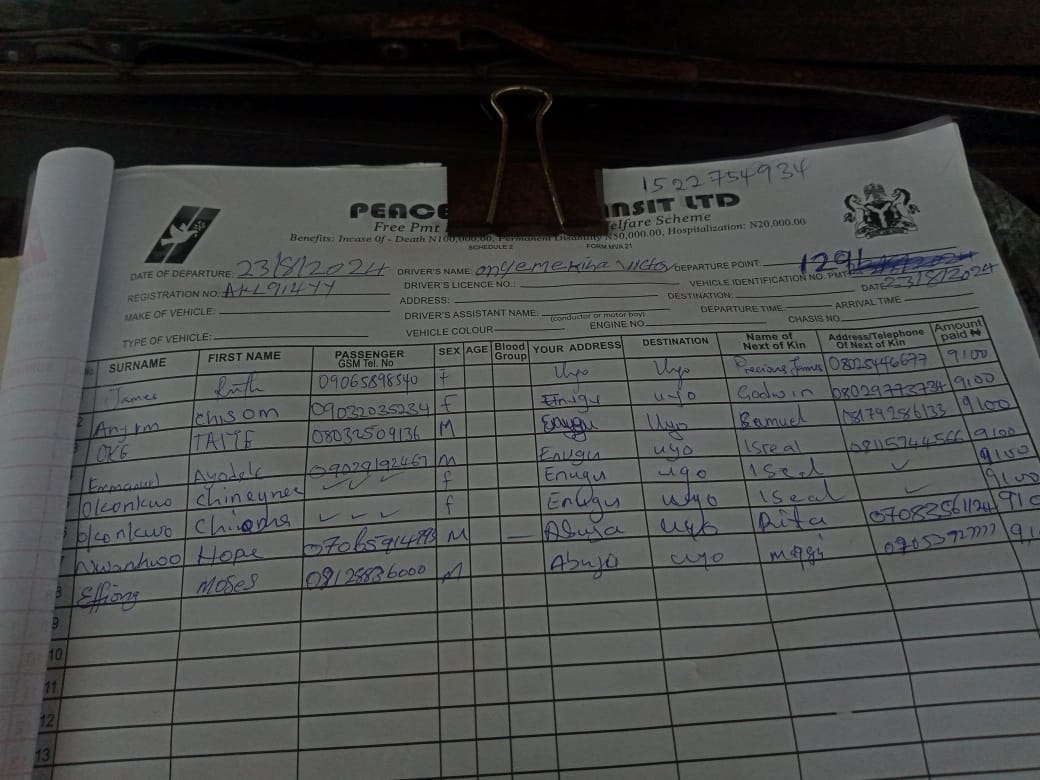 1522754934
PEACE NSIT LTD
Free Pmt elfare Scheme
Benefits: Incase Of - Death N100,000.00, Permanent Disability N50,000.00, Hospitalization: N20,000.00
SCHEDULE 2 FORM MVA 21
DATE OF DEPARTURE: 23/8/2024 DRIVER'S NAME: Victor DEPARTURE POINT: 1291
REGISTRATION NO: DRIVER'S LICENCE NO.: VEHICLE IDENTIFICATION NO. PMT: DATE 23/8/2024
MAKE OF VEHICLE: ADDRESS: DESTINATION: DEPARTURE TIME: ARRIVAL TIME
DRIVER'S ASSISTANT NAME: (conductor or motor boy)
TYPE OF VEHICLE: VEHICLE COLOUR ENGINE NO CHASIS NO
SURNAME FIRST NAME PASSENGER GSM Tel. No SEX AGE Blood Group YOUR ADDRESS DESTINATION Name of Next of Kin Address/Telephone Of Next of Kin Amount paid ₦
James Ruth 09065898540 F Uyo Uyo Precious James 08025446677 9100
2 Chisom 09032035234 f Enugu uyo Godwin 08029773734 9100
OKE 08032509136 M Enugu Uyo Samuel 08179286133 9100
Emmanuel Ayodele 09029192467 M Enugu uyo Isreal 08115744566 9100
Okonkwo f Enugu uyo ✓ 9100
okonkwo Chioma ✓ ✓ ✓ f Enugu uyo ✓ 9100
Nwankwo Hope M — Abuja uyo Rita 910
8 Effiong Moses 08128836000 M Abuja uyo 9,1
9
10
11
12
13